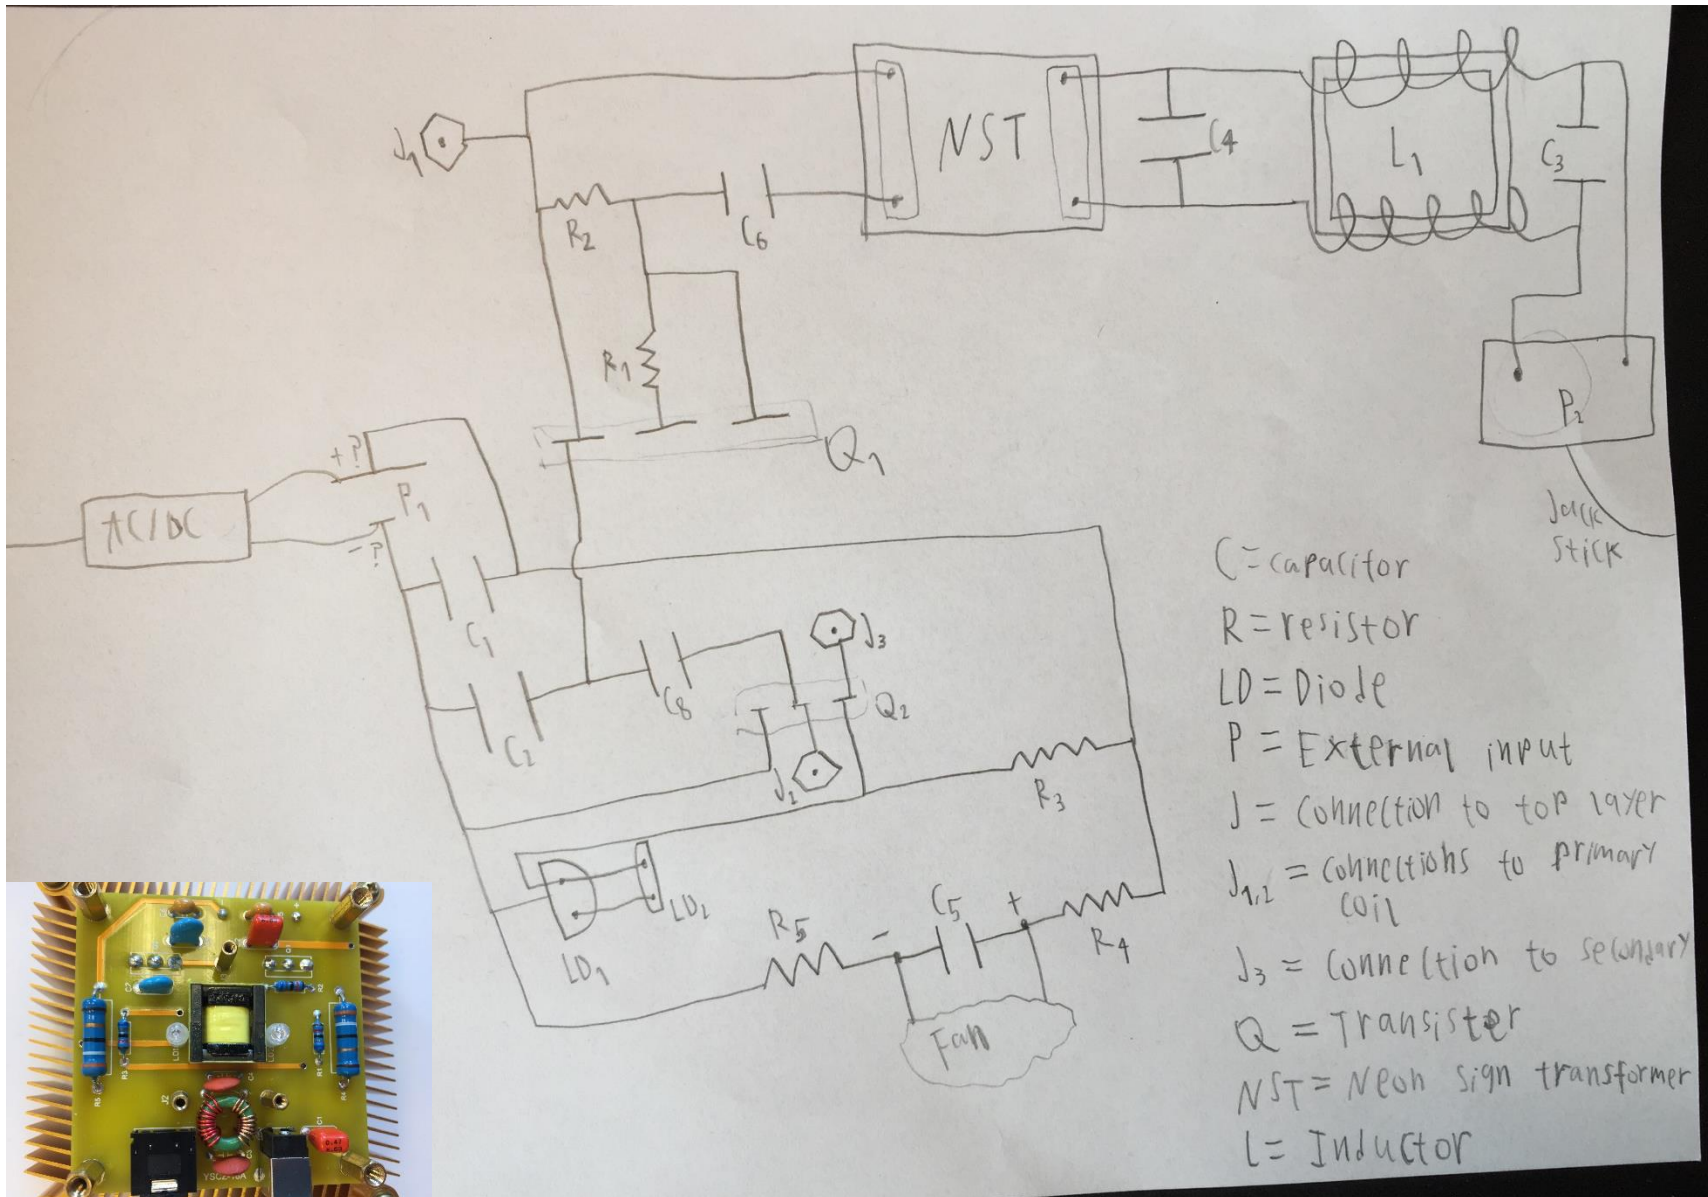 J1
NST
C4
L1
C3
R2
C6
R1
Q1
P2
Jack
stick
+?
P1
AC/DC
-?
C1
J3
C8
Q2
C2
J2
R3
LD2
LD1
R5
-
C5
+
R4
Fan
C=capacitor
R=resistor
LD=Diode
P = External input
J = Connection to top layer
J1,2 = connections to primary
coil
J3 = Connection to secondary
Q = Transister
NST= Neon sign transformer
L= Inductor
J2
C1